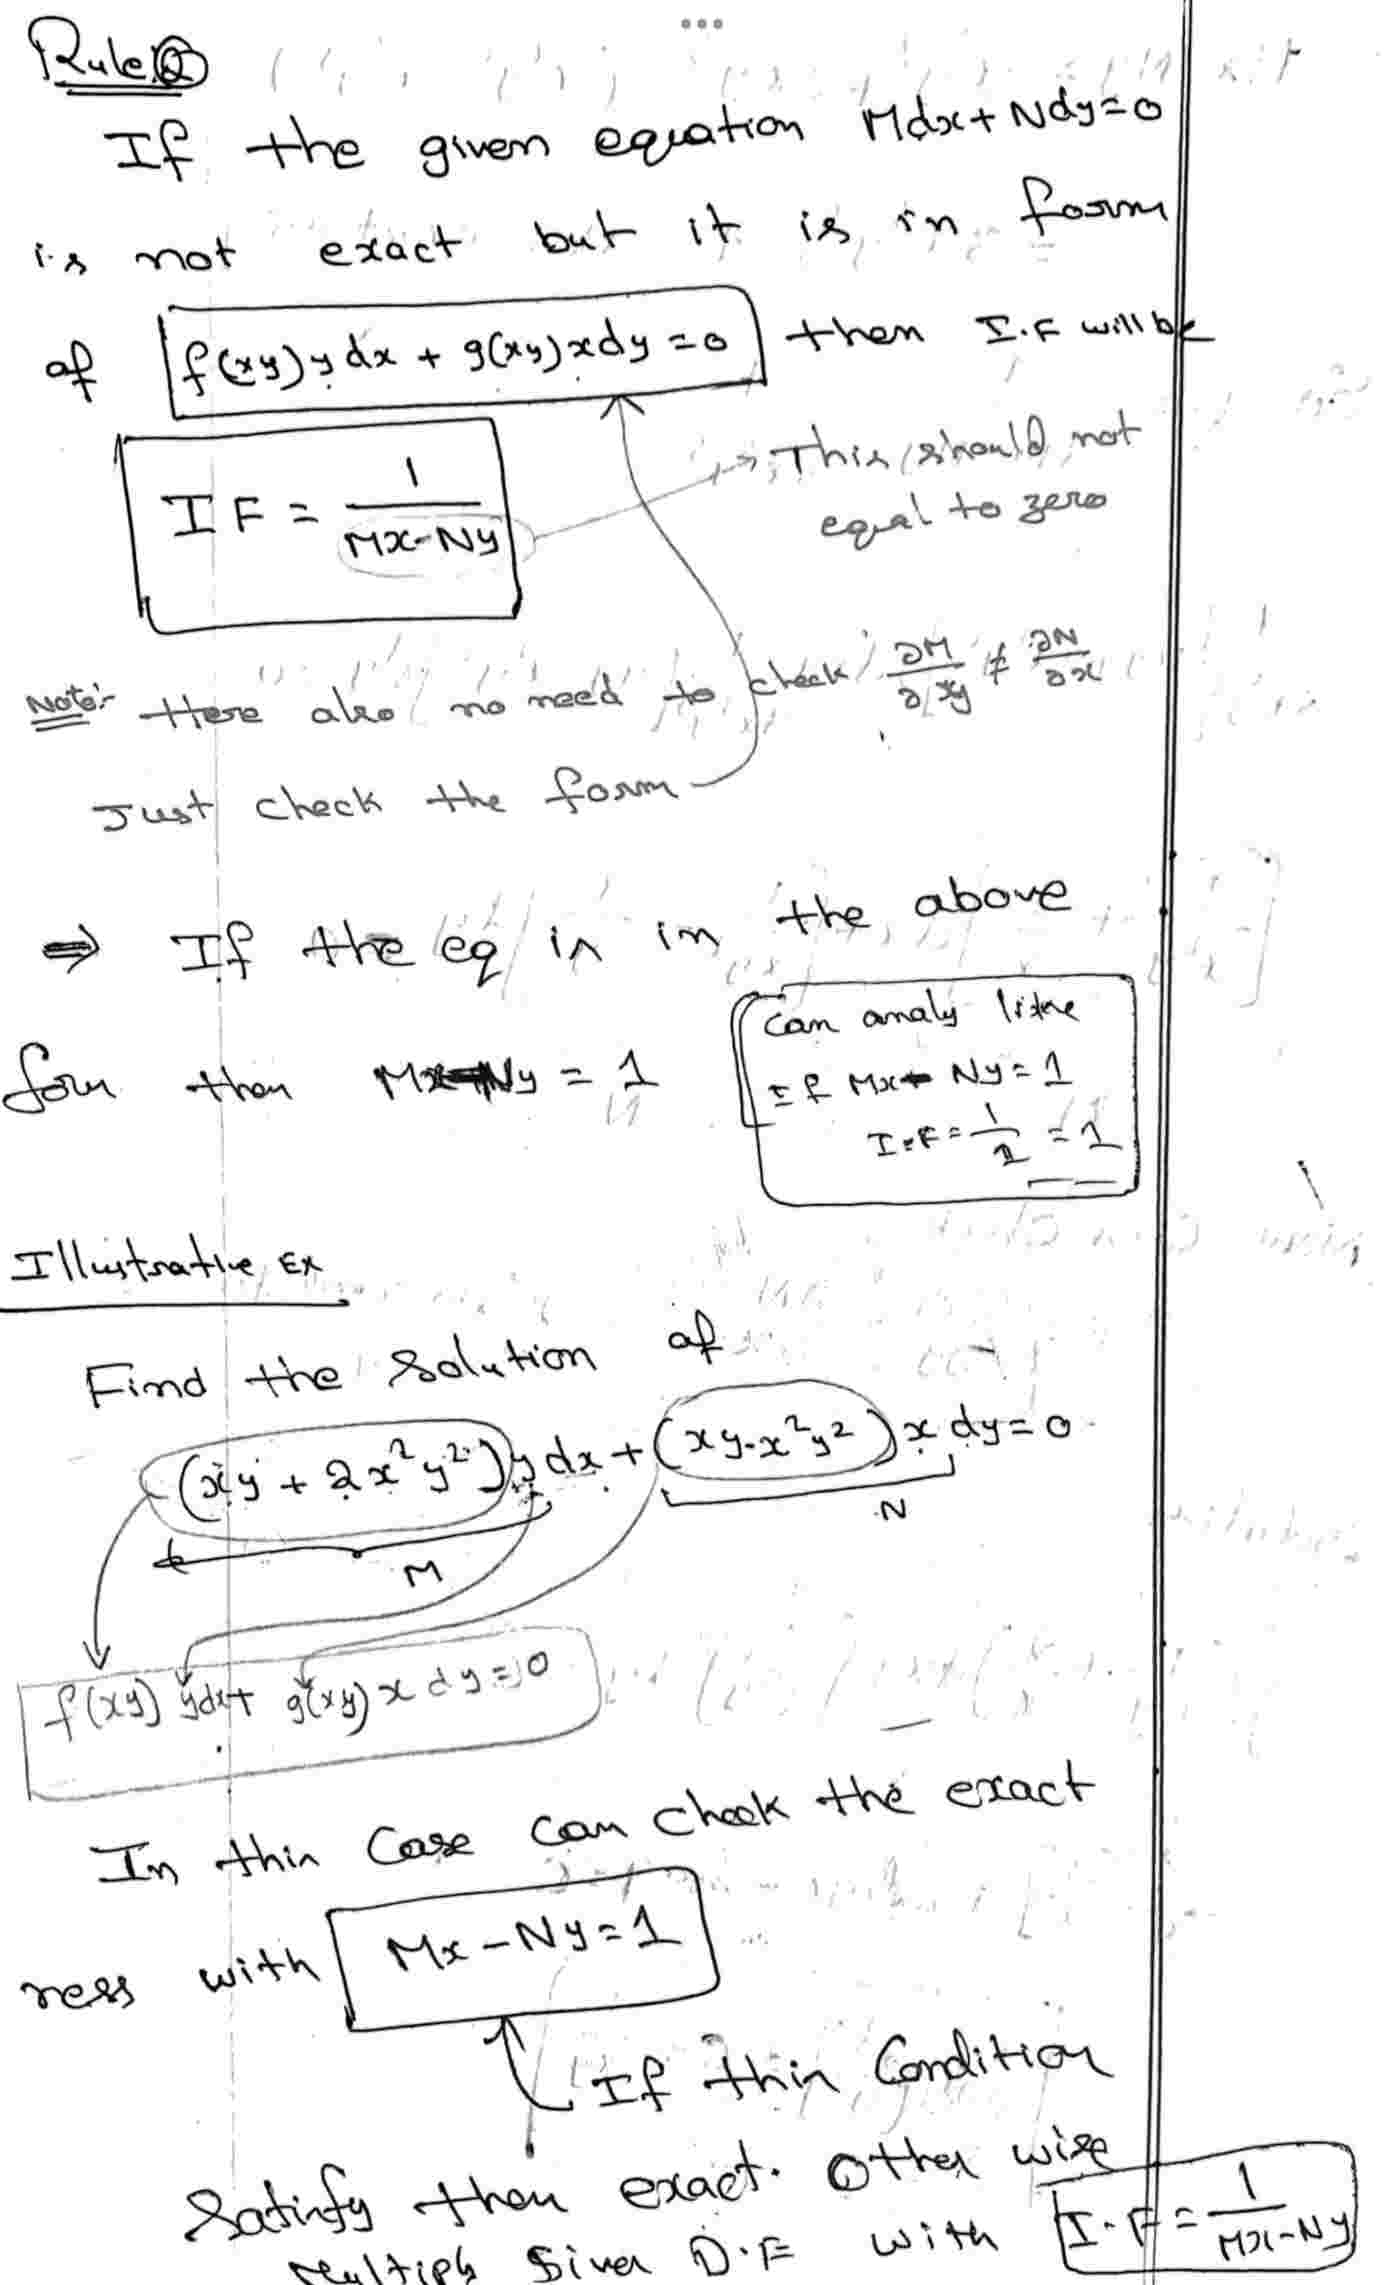 Rule ②
If the given equation Mdx + Ndy = 0
is not exact but it is in form
of f(xy) y dx + g(xy) x dy = 0 then I.F will be
IF = 1/(Mx-Ny)
→ This should not
equal to zero
Note:- Here also no need to check ∂M/∂y ≠ ∂N/∂x
Just check the form
⇒ If the eq is in the above
form then Mx-Ny = 1
Can analy like
If Mx - Ny = 1
I.F = 1/1 = 1
Illustrative Ex
Find the Solution of
(xy + 2x²y²) y dx + (xy - x²y²) x dy = 0
M
N
f(xy) ydx + g(xy) x dy = 0
In this Case can check the exact
ness with Mx - Ny = 1
If this Condition
Satisfy then exact. Other wise
Multiply given D.E with I.F = 1/(Mx-Ny)